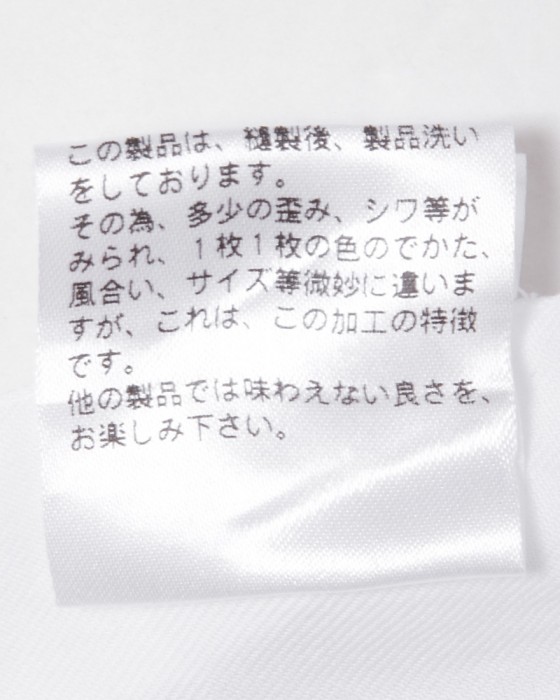 この製品は、縫製後、製品洗い
をしております。
その為、多少の歪み、シワ等が
みられ、１枚１枚の色のでかた、
風合い、サイズ等微妙に違いま
すが、これは、この加工の特徴
です。
他の製品では味わえない良さを、
お楽しみ下さい。